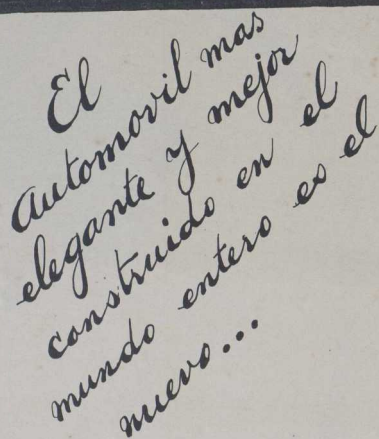 El
automovil mas
elegante y mejor
construido en el
mundo entero es el
nuevo...